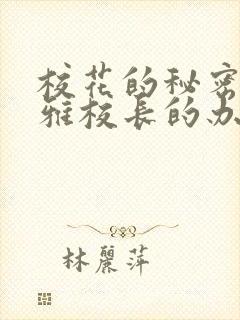 校花的秘密
雅校长的办
林麗萍